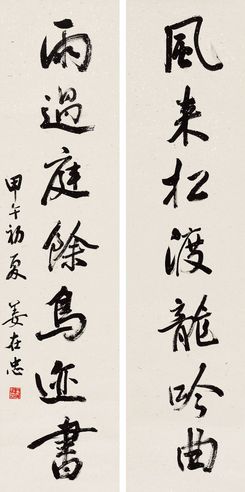 風来松渡龍吟曲
雨過庭餘鳥迹書
甲午初夏 姜在忠